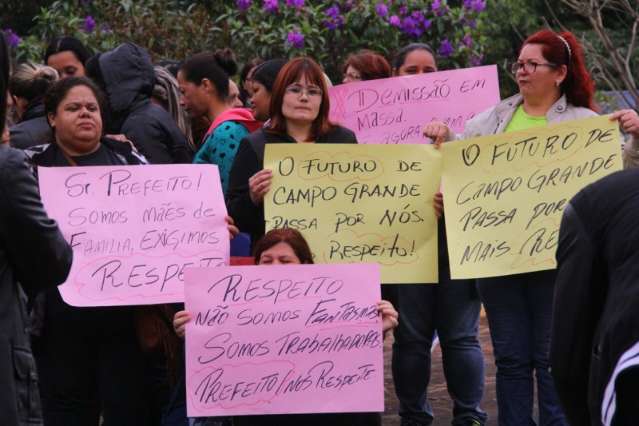 DEMISSÃO EM
MASSA
AGUR
SR. PREFEITO!
SOMOS MÃES DE
FAMILIA, EXIGIMOS
RESPE
O FUTURO DE
CAMPO GRANDE
PASSA POR NÓS.
RESPEITO!
O FUTURO DE
CAMPO GRANDE
PASSA POR
MAIS RE
RESPEITO
NÃO SOMOS FANTASMAS
SOMOS TRABALHADORAS
PREFEITO! NOS RESPEITE